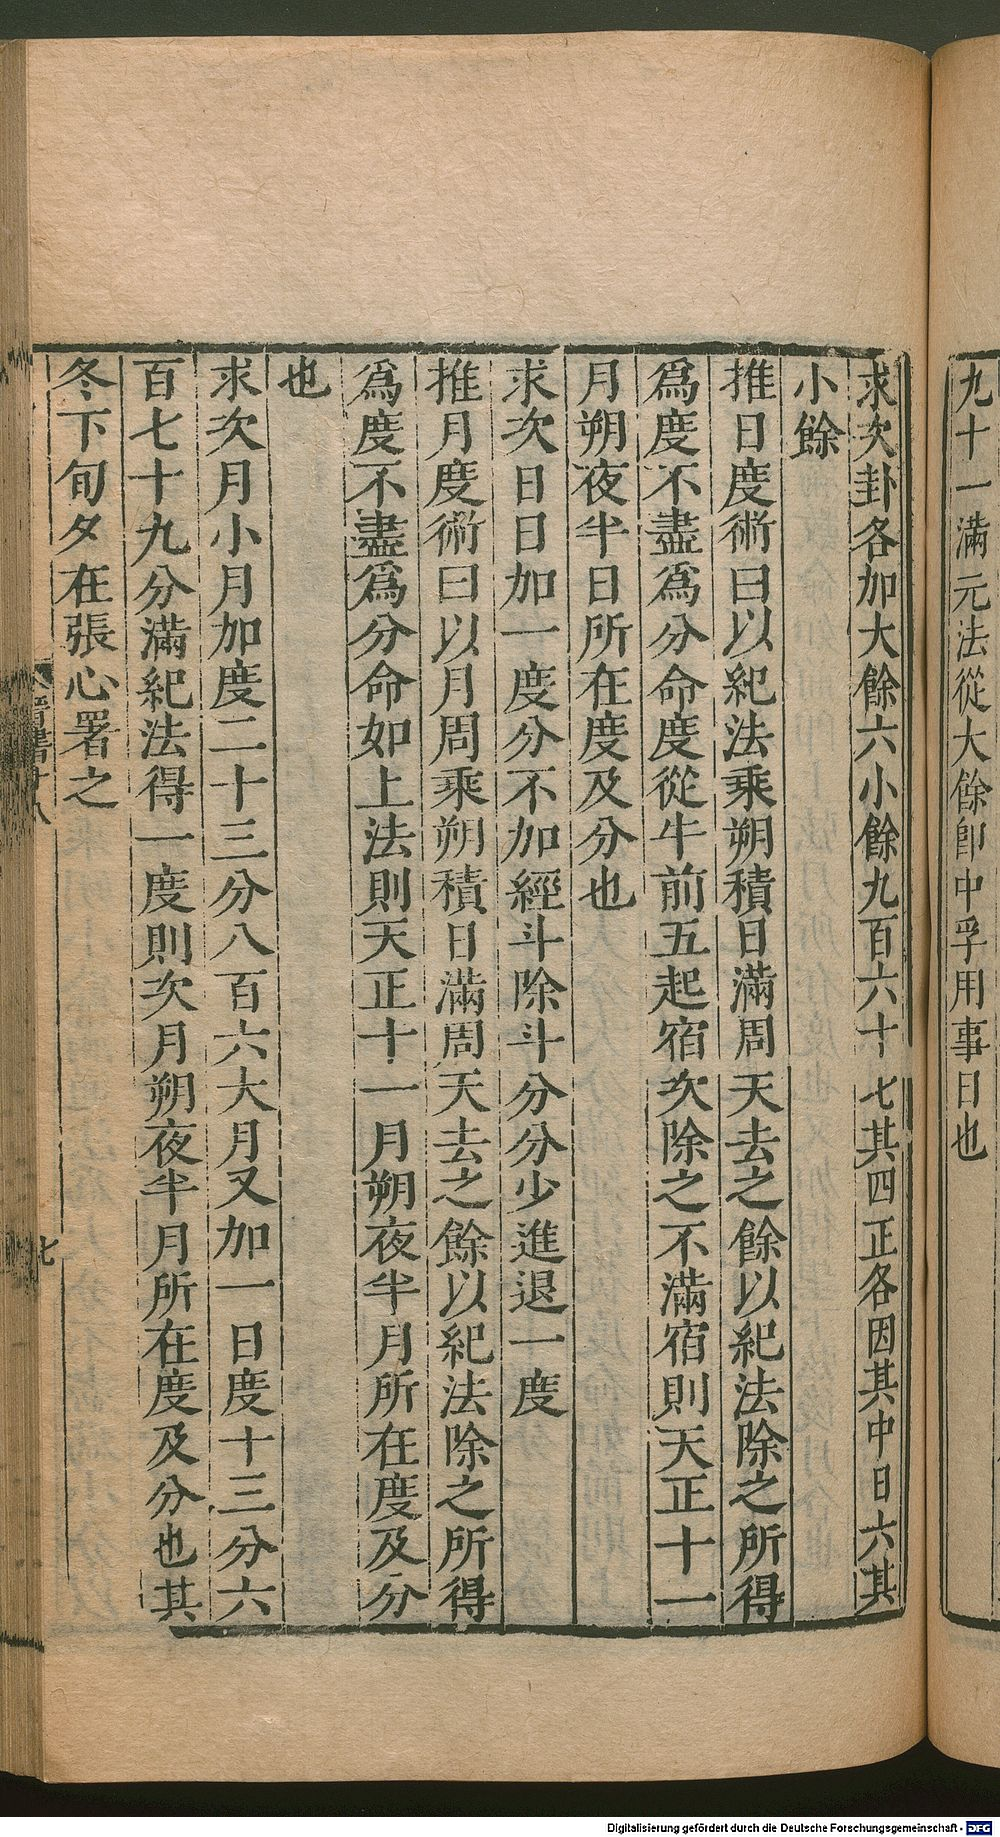 九十一滿元法從大餘卽中孚用事日也
求次卦各加大餘六小餘九百六十七其四正各因其中日六其
小餘
推日度術曰以紀法乘朔積日滿周天去之餘以紀法除之所得
爲度不盡爲分命度從牛前五起宿次除之不滿宿則天正十一
月朔夜半日所在度及分也
求次日日加一度分不加經斗除斗分分少進退一度
推月度術曰以月周乘朔積日滿周天去之餘以紀法除之所得
爲度不盡爲分命如上法則天正十一月朔夜半月所在度及分
也
求次月小月加度二十三分八百六大月又加一日度十三分六
百七十九分滿紀法得一度則次月朔夜半月所在度及分也其
冬下旬夕在張心署之
晋書十八
七
Digitalisierung gefördert durch die Deutsche Forschungsgemeinschaft - DFG